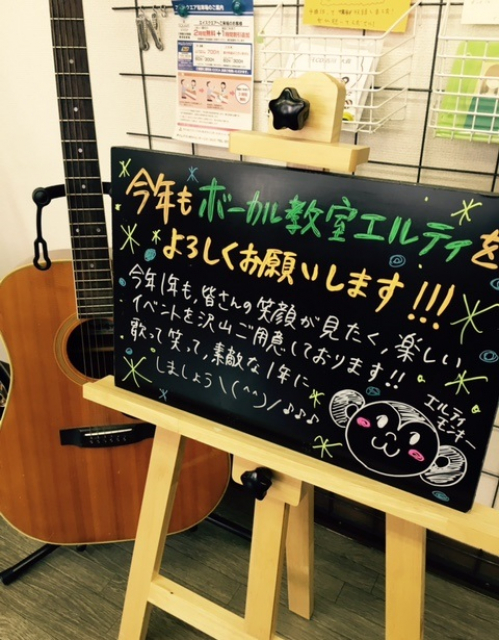 今年もボーカル教室エルティを
よろしくお願いします!!!
今年1年も,皆さんの笑顔が見たく,楽しい
イベントを沢山ご用意しております!!
歌って笑って,素敵な1年に
しましょう\(^^)/♪♪♪
エルティ
モンキー